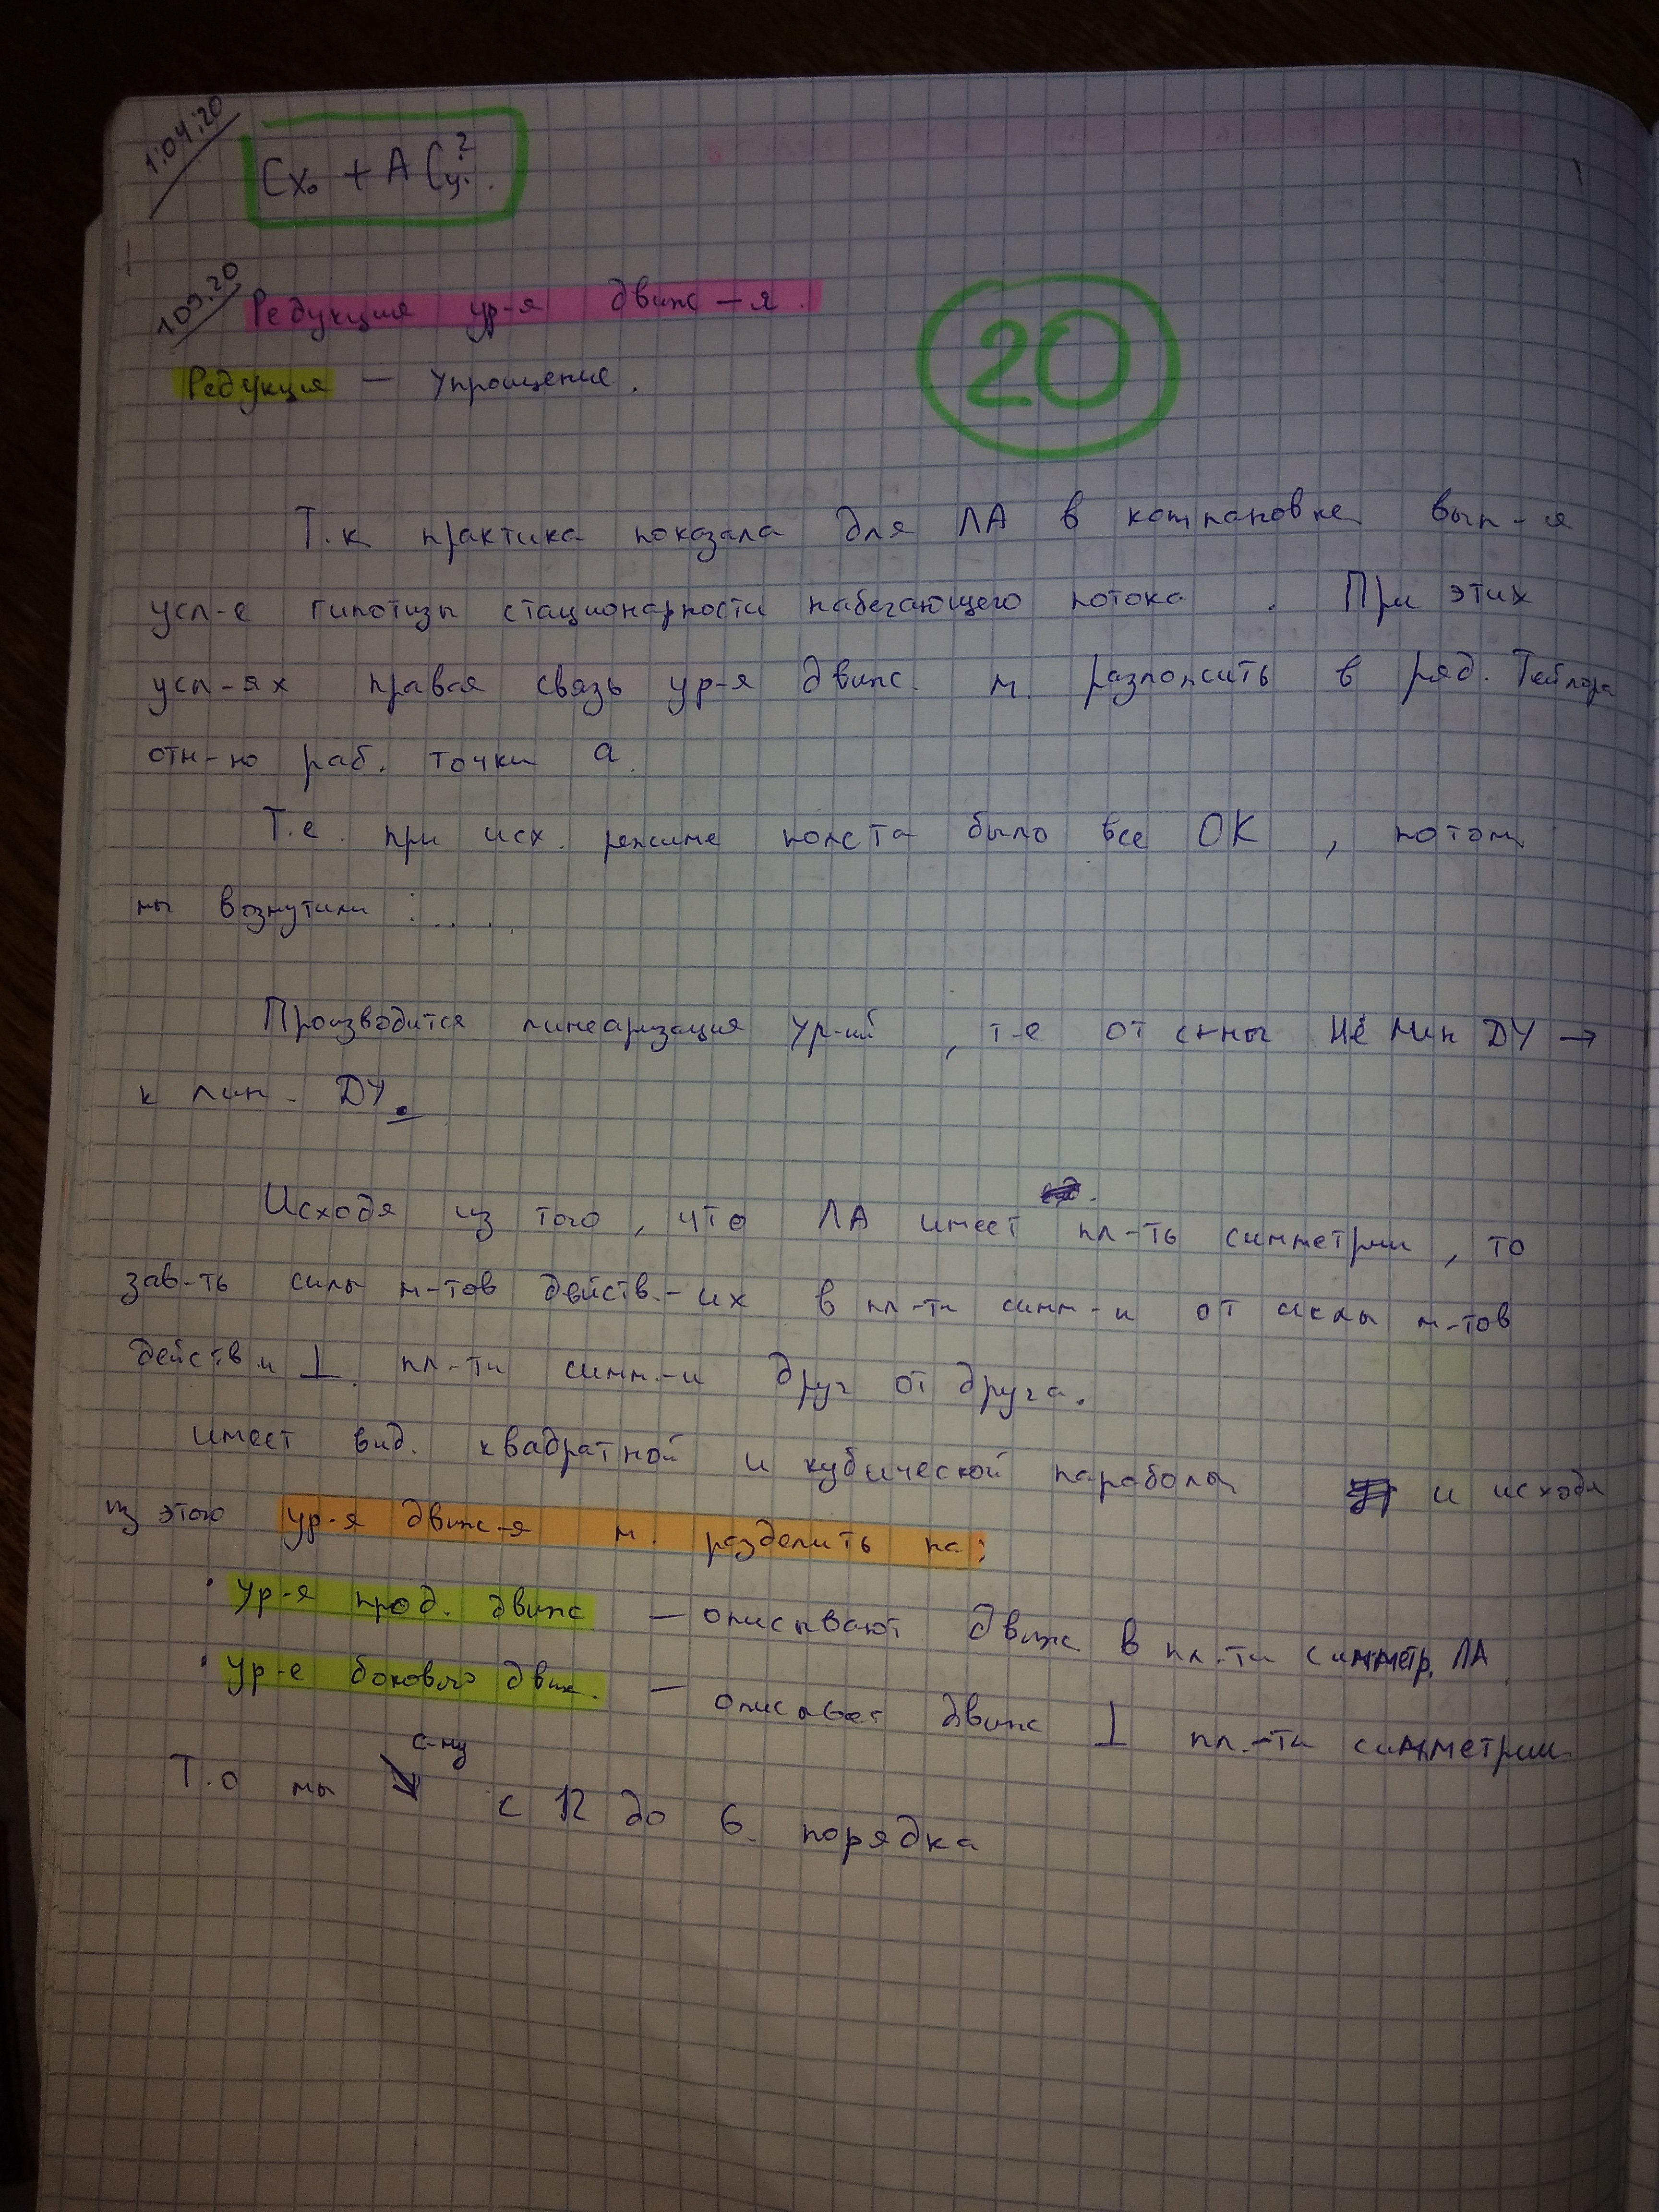 1:04:20
Cx₀ + A Cy².
1.09.20
Редукция ур-я движ-я.
20
Редукция — упрощение.
Т.к практика показала для ЛА в компановке вып-я
усл-е гипотизы стационарности набегающего потока . При этих
усл-ях правая связь ур-я движ. м. разложить в ряд. Тейлора
отн-но раб. точки а.
Т.е. при исх. режиме полета было все ОК , потом
мы возмутили : . . . .
Производится линеаризация ур-ий , т-е от с-мы не лин ДУ →
к лин. ДУ.
Исходя из того , что ЛА имеет пл-ть симметрии , то
зав-ть силы м-тов действ.-их в пл-ти симм-и от силы м-тов
действ и ⊥ пл-ти симм.-и друг от друга.
имеет вид. квадратной и кубической параболы и исходя
из этого ур-я движ-я м. разделить на:
· ур-я прод. движ — описывают движ в пл.-ти симметр. ЛА
· ур-е бокового движ. — описывает движ ⊥ пл.-ти симметрии
с-му
Т.о мы ↘ с 12 до 6. порядка